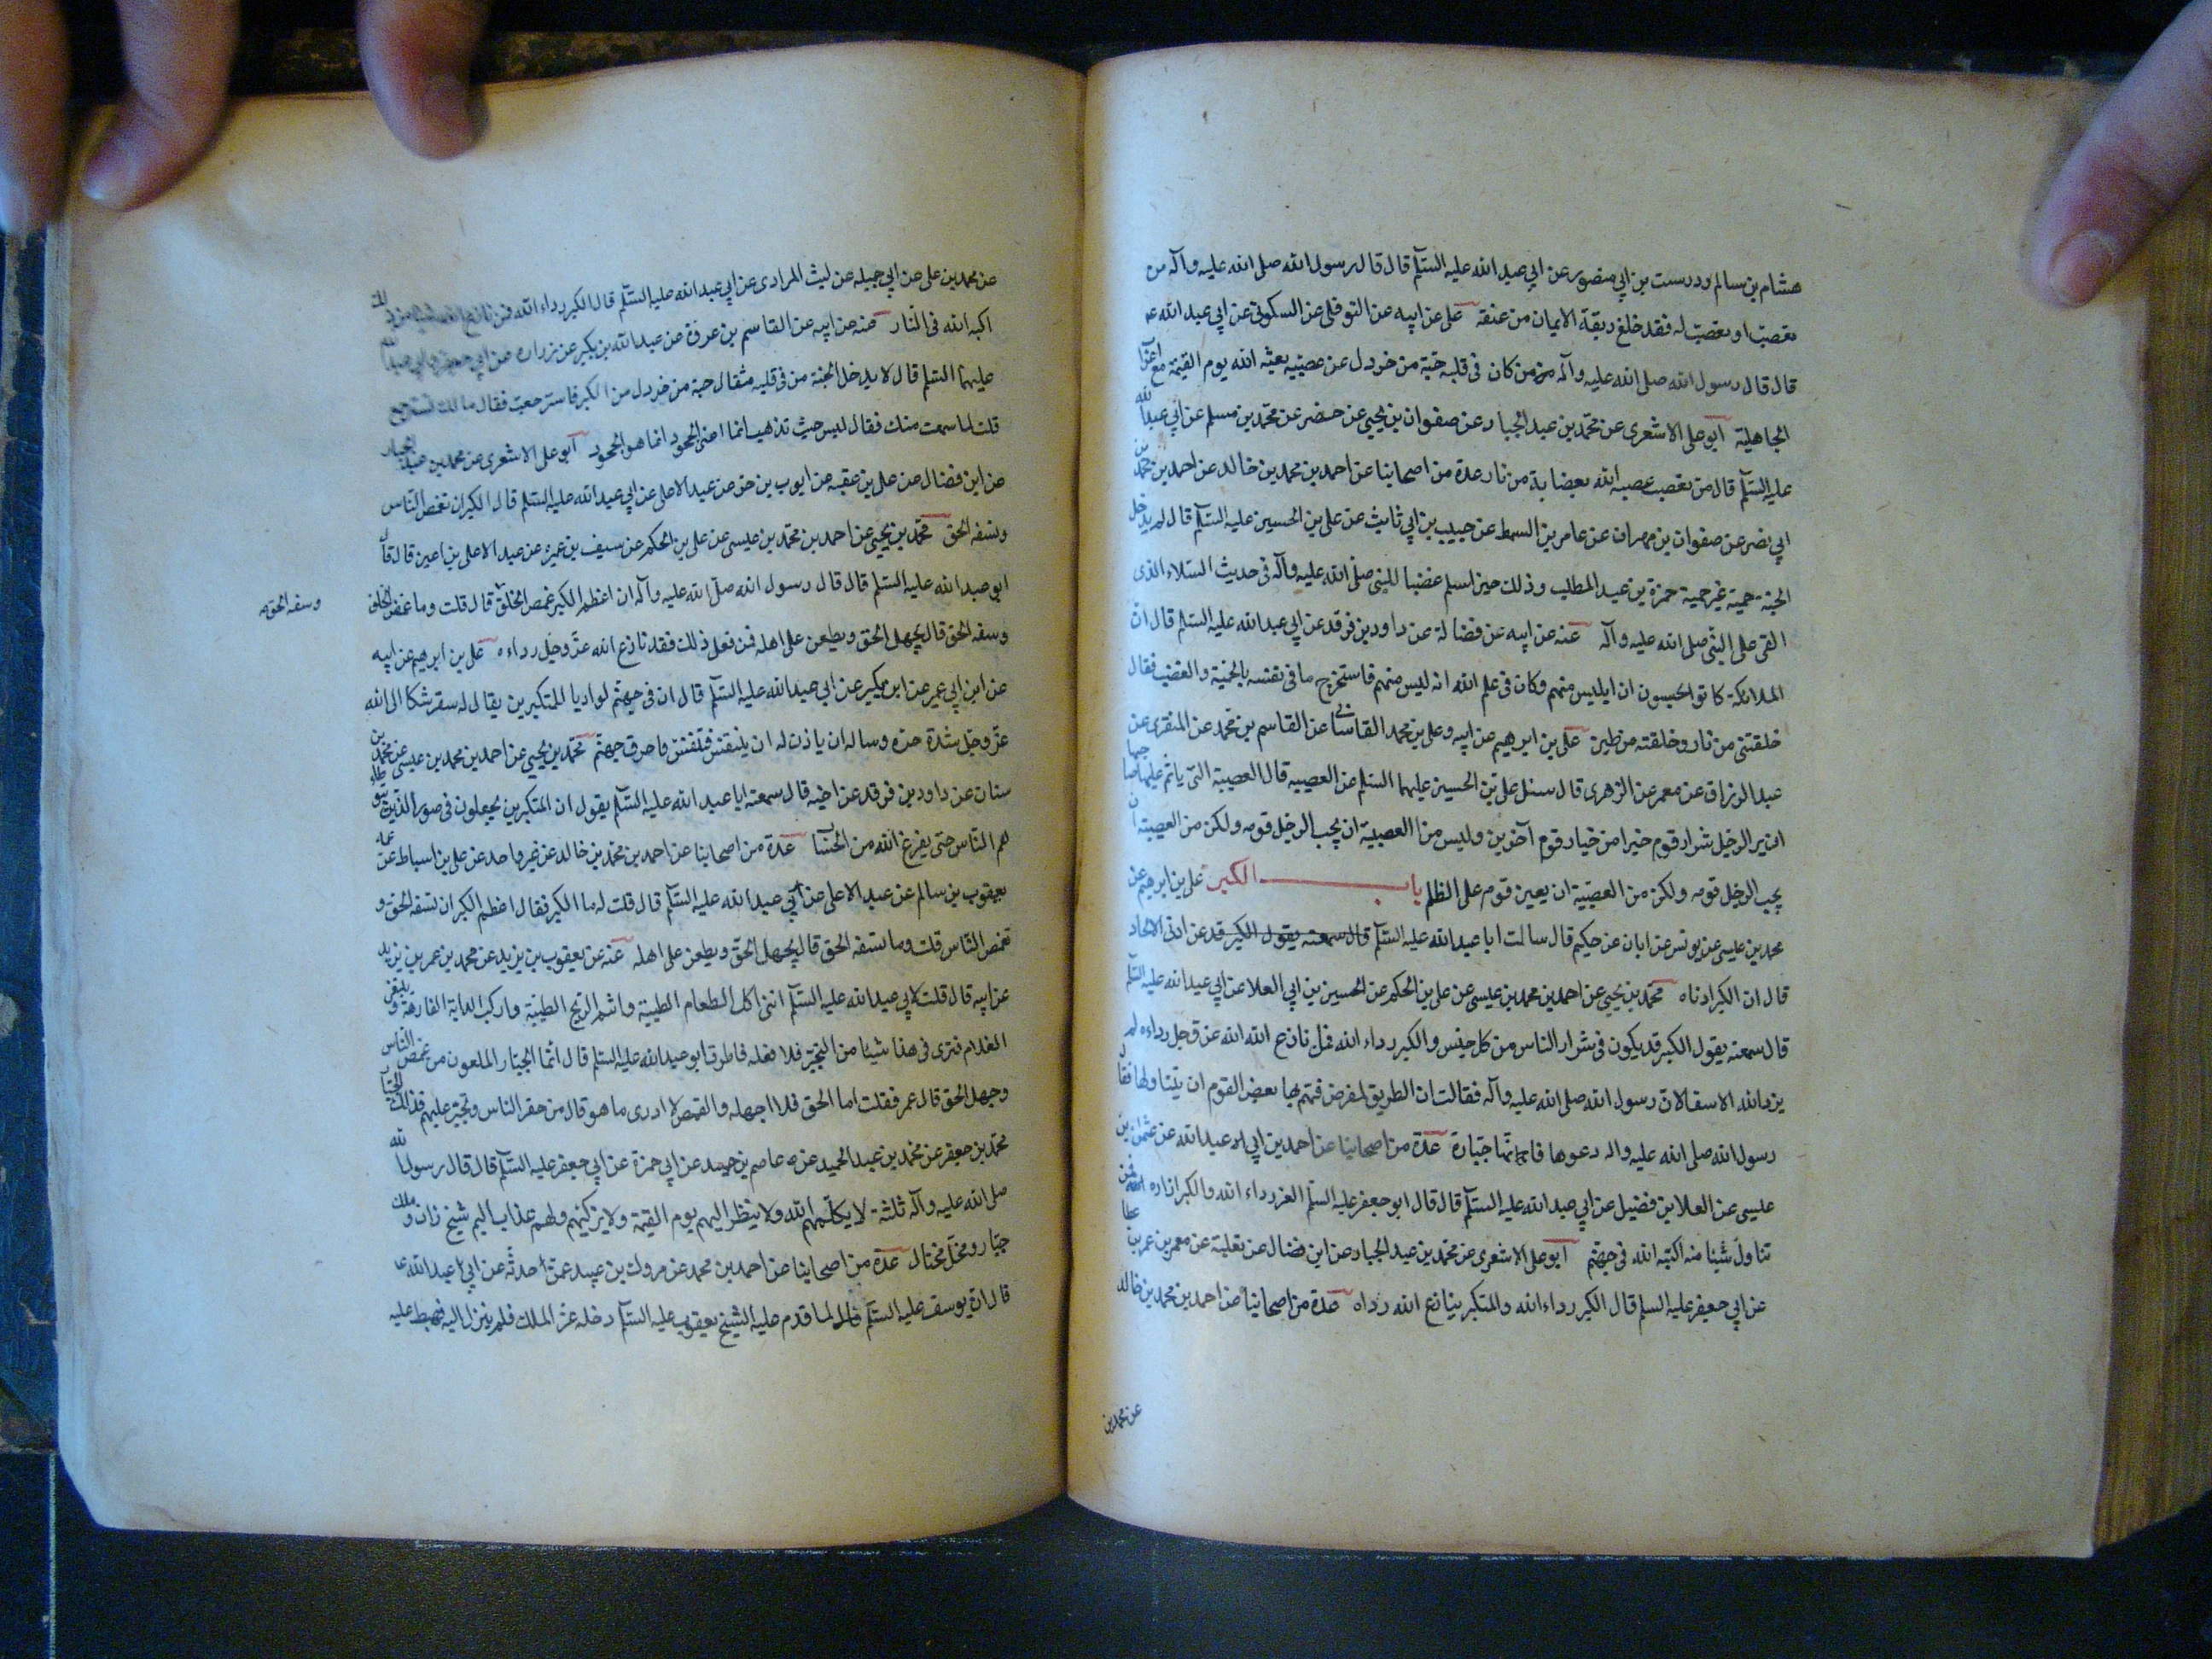 هشام بن سالم ودرست بن ابي منصور عن ابي عبد الله عليه السلم قال قال رسول الله صلى الله عليه وآله من
تعصب او تعصب له فقد خلع ربقة الايمان من عنقه علی عن ابيه عن النوفلی عن السكونی عن ابي عبد الله ع
قال قال رسول الله صلى الله عليه وآله من كان فى قلبه حبة من خردل من عصبيه بعثه الله يوم القيمة مع اعراب
الجاهلية ابو علی الاشعری عن محمد بن عبد الجبار عن صفوان بن يحيی عن خضر عن محمد بن مسلم عن ابی عبد الله
عليه السلم قال من تعصب عصبه الله بعصابة من نار عدة من اصحابنا عن احمد بن محمد بن خالد عن احمد بن محمد بن
ابی نصر عن صفوان بن مهران عن عامر بن السمط عن حبيب بن ابی ثابت عن علی بن الحسين عليه السلم قال لم يدخل
الجنة حمية غير حمية حمزة بن عبد المطلب وذلك حين اسلم غضبا للنبی صلى الله عليه وآله فى حديث السلاء الذى
القى على النبی صلى الله عليه وآله عنه عن ابيه عن فضالة عن داود بن فرقد عن ابی عبد الله عليه السلم قال ان
الملائكة كانوا يحسبون ان ابليس منهم وكان فى علم الله انه ليس منهم فاستخرج ما فى نفسه بالحمية والغضب فقال
خلقتنی من نار وخلقته من طين علی بن ابرهيم عن ابيه وعلی بن محمد القاسانی عن القاسم بن محمد عن المنقری عن
عبد الرزاق عن معمر عن الزهری قال سئل علی بن الحسين عليهما السلم عن العصبيه قال العصبية التی ياثم عليها صاحبها
ان يرى الرجل شرار قوم خيرا من خيار قوم آخرين وليس من العصبية ان يحب الرجل قومه ولكن من العصبية ان
يحب الرجل قومه ولكن من العصبية ان يعين قوم على الظلم باب الكبر علی بن ابرهيم عن
محمد بن عيسى عن يونس عن ابان عن حكيم قال سالت ابا عبد الله عليه السلم قال سمعته يقول الكبر قد عن ادنى الالحاد
قال ان الكبر ادناه محمد بن يحيی عن احمد بن محمد بن عيسى عن علی بن الحكم عن الحسين بن ابی العلا عن ابی عبد الله عليه السلم
قال سمعته يقول الكبر قد يكون فى شرار الناس من كل جنس والكبر رداء الله فمن نازع الله الله عز وجل رداءه لم
يزد الله الا سفالا ان رسول الله صلى الله عليه وآله فقالت ان الطريق لمعرض فهم بها بعض القوم ان يتناولها فقال
رسول الله صلى الله عليه واله دعوها فانها جبارة عدة من اصحابنا عن احمد بن ابی عبد الله عن عثمن بن
عيسى عن العلا بن فضيل عن ابی عبد الله عليه السلم قال قال ابو جعفر عليه السلم العز رداء الله والكبر ازاره فمن
تناول شيئا منه اكبه الله فى جهنم ابو علی الاشعری عن محمد بن عبد الجبار عن ابن فضال عن ثعلبة عن معمر بن عمر بن عطا
عن ابی جعفر عليه السلم قال الكبر رداء الله والمتكبر ينازع الله رداه عدة من اصحابنا عن احمد بن محمد بن خالد
عن محمد بن
عن محمد بن علی عن ابی جميله عن ليث المرادی عن ابی عبد الله عليه السلم قال الكبر رداء الله فمن نازع الله شيئا من ذلك
اكبه الله فى النار عنه عن ابيه عن القاسم بن عروة عن عبد الله بن بكير عن زراره عن ابی جعفر وابی عبد الله
عليهما السلم قال لا يدخل الجنة من فى قلبه مثقال حبة من خردل من الكبر فاسترجعت فقال مالك تسترجع
قلت لما سمعت منك فقال ليس حيث تذهب انما اعنى الجحود انما هو الجحود ابو علی الاشعری عن محمد بن عبد الجبار
عن ابن فضال عن علی بن عقبه عن ايوب بن حر عن عبد الاعلى عن ابی عبد الله عليه السلم قال الكبر ان تغمص الناس
وتسفه الحق محمد بن يحيی عن احمد بن محمد بن عيسى عن علی بن الحكم عن سيف بن عميره عن عبد الاعلى بن اعين قال قال
ابو عبد الله عليه السلم قال قال رسول الله صلى الله عليه وآله ان اعظم الكبر غمص الخلق قال قلت وما غمص الخلق
وسفه الحق
وسفه الحق قال يجهل الحق ويطعن على اهله فمن فعل ذلك فقد نازع الله عز وجل رداءه علی بن ابرهيم عن ابيه
عن ابن ابی عمير عن ابن بكير عن ابی عبد الله عليه السلم قال ان فى جهنم لواديا للمتكبرين يقال له سقر شكا الى الله
عز وجل شدة حره وساله ان ياذن له ان يتنفس فتنفس فاحرق جهنم محمد بن يحيی عن احمد بن محمد بن عيسى عن محمد بن
سنان عن داود بن فرقد عن اخيه قال سمعت ابا عبد الله عليه السلم يقول ان المتكبرين يجعلون فى صور الذر يتوطاهم
هم الناس حتى يفرغ الله من الحساب عدة من اصحابنا عن احمد بن محمد بن خالد عن غير واحد عن علی بن اسباط عن عمه
يعقوب بن سالم عن عبد الاعلى عن ابی عبد الله عليه السلم قال قلت له ما الكبر فقال اعظم الكبر ان تسفه الحق و
تغمص الناس قلت وما تسفه الحق قال يجهل الحق ويطعن على اهله عنه عن يعقوب بن يزيد عن محمد بن عمر بن يزيد
عن ابيه قال قلت لابی عبد الله عليه السلم اننی اكل الطعام الطيبة واشم الريح الطيبة واركب الدابة الفارهة و يتبعنی
الغلام فترى فى هذا شيئا من التجبر فلا افعله فاطرق ابو عبد الله عليه السلم قال انما الجبار الملعون من غمص الناس
وجهل الحق قال عمر فقلت اما الحق فلا اجهله والغمص لا ادری ما هو قال من حقر الناس وتجبر عليهم فذلك الجبار
محمد بن جعفر عن محمد بن عبد الحميد عن عاصم بن حميد عن ابی حمزة عن ابی جعفر عليه السلم قال قال رسول الله
صلى الله عليه وآله ثلثة لا يكلمهم الله ولا ينظر اليهم يوم القيمة ولا يزكيهم ولهم عذاب اليم شيخ زان وملك
جبار ومختال عدة من اصحابنا عن احمد بن محمد عن مروك بن عبيد عمن حدثه عن ابی عبد الله ع
قال ان يوسف عليه السلم لما قدم عليه الشيخ يعقوب عليه السلم دخله عز الملك فلم ينزل اليه فهبط عليه